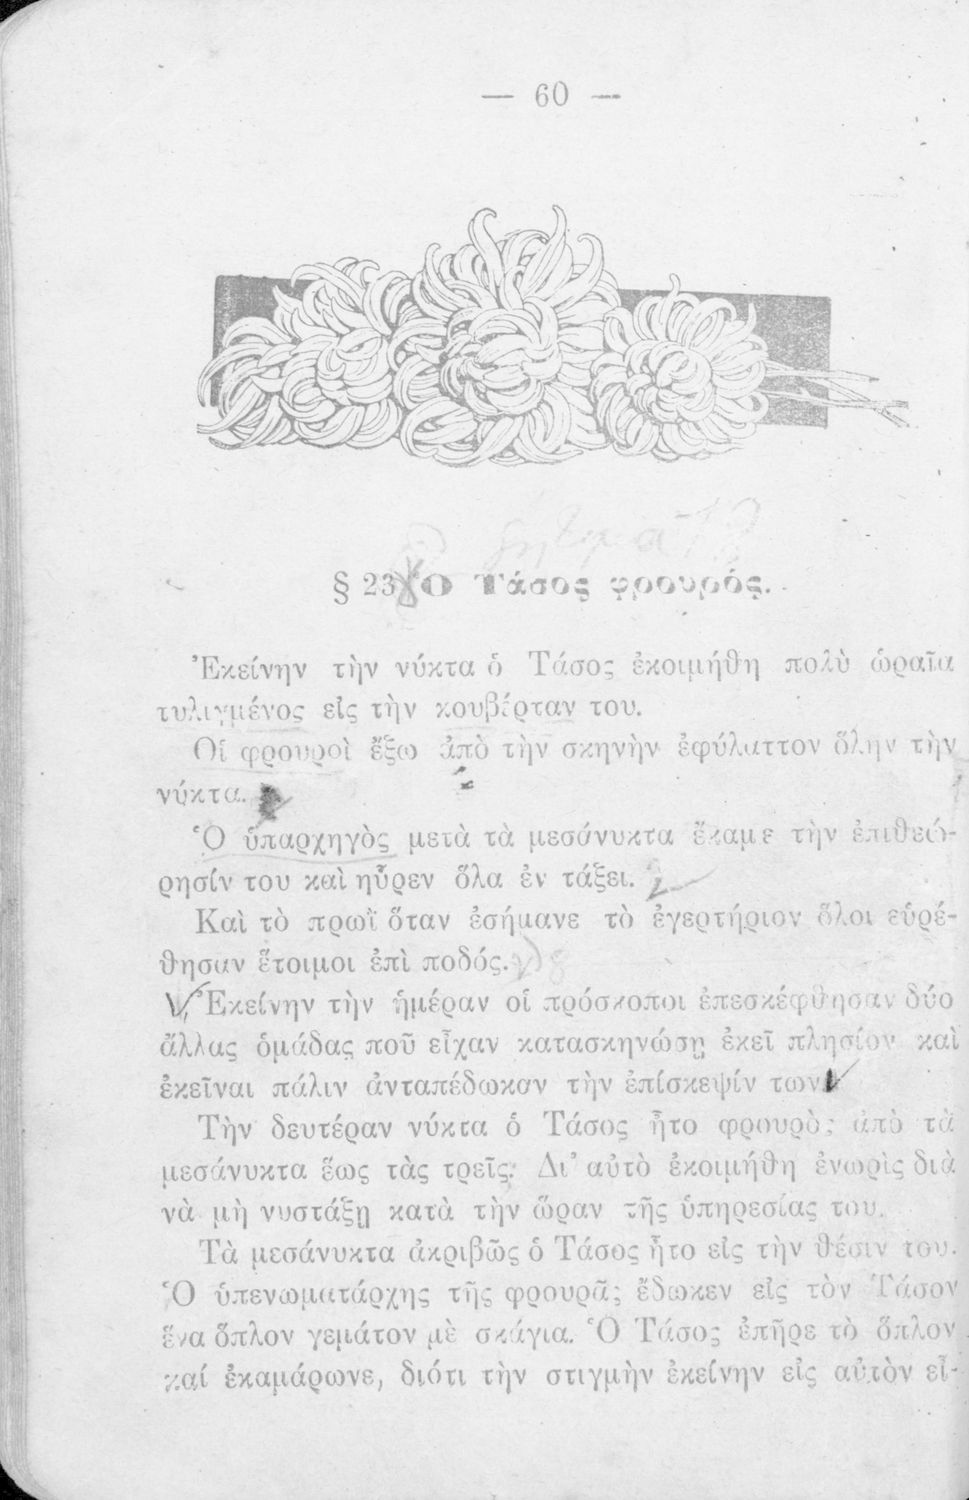 — 60 —
§ 23 Ὁ Τάσος φρουρός.
Ἐκείνην τὴν νύκτα ὁ Τάσος ἐκοιμήθη πολὺ ὡραῖα
τυλιγμένος εἰς τὴν κουβέρταν του.
Οἱ φρουροὶ ἔξω ἀπὸ τὴν σκηνὴν ἐφύλαττον ὅλην τὴν
νύκτα.
Ὁ ὑπαρχηγὸς μετὰ τὰ μεσάνυκτα ἔκαμε τὴν ἐπιθεώ-
ρησίν του καὶ ηὗρεν ὅλα ἐν τάξει.
Καὶ τὸ πρωῒ ὅταν ἐσήμανε τὸ ἐγερτήριον ὅλοι εὑρέ-
θησαν ἕτοιμοι ἐπὶ ποδός.
Ἐκείνην τὴν ἡμέραν οἱ πρόσκοποι ἐπεσκέφθησαν δύο
ἄλλας ὁμάδας ποῦ εἶχαν κατασκηνώσῃ ἐκεῖ πλησίον καὶ
ἐκεῖναι πάλιν ἀνταπέδωκαν τὴν ἐπίσκεψίν των.
Τὴν δευτέραν νύκτα ὁ Τάσος ἦτο φρουρὸς ἀπὸ τὰ
μεσάνυκτα ἕως τὰς τρεῖς. Δι’ αὐτὸ ἐκοιμήθη ἐνωρὶς διὰ
νὰ μὴ νυστάξῃ κατὰ τὴν ὥραν τῆς ὑπηρεσίας του.
Τὰ μεσάνυκτα ἀκριβῶς ὁ Τάσος ἦτο εἰς τὴν θέσιν του.
Ὁ ὑπενωματάρχης τῆς φρουρᾶς ἔδωκεν εἰς τὸν Τάσον
ἕνα ὅπλον γεμάτον μὲ σκάγια. Ὁ Τάσος ἐπῆρε τὸ ὅπλον
καί ἐκαμάρωνε, διότι τὴν στιγμὴν ἐκείνην εἰς αὐτὸν εἶ-